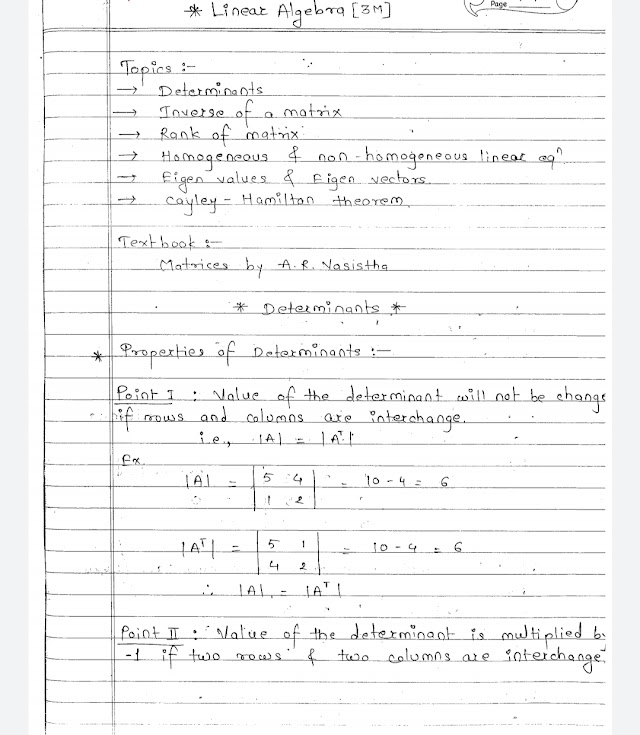 Page
* Linear Algebra [3M]
Topics :-
→ Determinants
→ Inverse of a matrix
→ Rank of matrix
→ Homogeneous & non-homogeneous linear eqⁿ
→ Eigen values & Eigen vectors.
→ Cayley - Hamilton theorem.
Textbook :-
Matrices by A.R. Vasistha
* Determinants *
* Properties of Determinants :-
Point I : Value of the determinant will not be change
if rows and columns are interchange.
i.e., |A| = |Aᵀ|
Ex
|A| = | 5 4 | = 10 - 4 = 6
| 1 2 |
|Aᵀ| = | 5 1 | = 10 - 4 = 6
| 4 2 |
∴ |A| = |Aᵀ|
Point II : Value of the determinant is multiplied b
-1 if two rows & two columns are interchange.